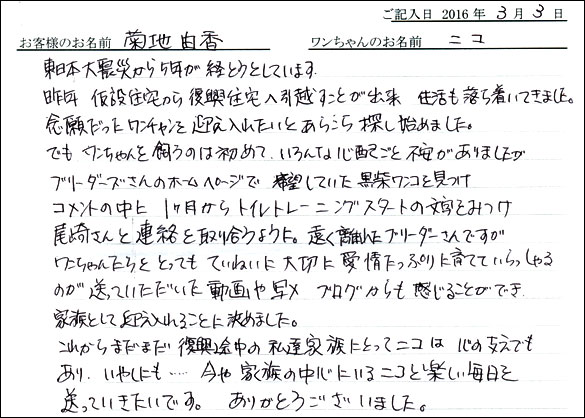 ご記入日 2016 年 3 月 3 日
お客様のお名前 菊地由香 ワンちゃんのお名前 ニコ
東日本大震災から5年が経とうとしています。
昨年 仮設住宅から復興住宅へ引越すことが出来 生活も落ち着いてきました。
念願だったワンチャンを迎え入れたいとあちこち探し始めました。
でもワンちゃんを飼うのは初めて、いろんな心配ごと不安がありましたが
ブリーダーズさんのホームページで 希望していた黒柴ワンコを見つけ
コメントの中に 1ヶ月からトイレトレーニングスタートの文字をみつけ
尾崎さんと連絡を取り合うように。遠く離れたブリーダーさんですが
ワンちゃんたちをとってもていねいに大切に愛情たっぷりに育てていらっしゃる
のが送っていただいた動画や写メ ブログからも感じることができ
家族として迎え入れることに決めました。
これからまだまだ復興途中の私達家族にとってニコは心の支えでも
あり、いやしにも…… 今や家族の中心にいるニコと楽しい毎日を
送っていきたいです。 ありがとうございました。